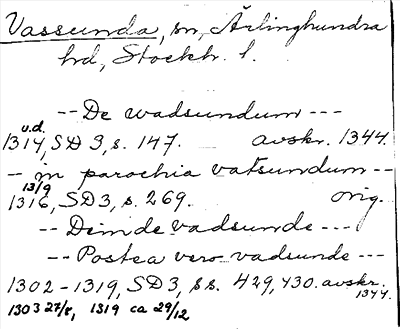 Vassunda, sn, Ärlinghundra
hd, Stockh. l.
-- De wadsundum ---
u.d.
1314, SD 3, s. 147. avskr. 1344.
-- in parochia vatsundum --
13/9
1316, SD3, s. 269. orig.
-- Deinde vadsunde ---
-- Postea vero vadsunde --
1302-1319, SD3, ss. 429, 430. avskr.
1344.
1303 27/8, 1319 ca 29/12